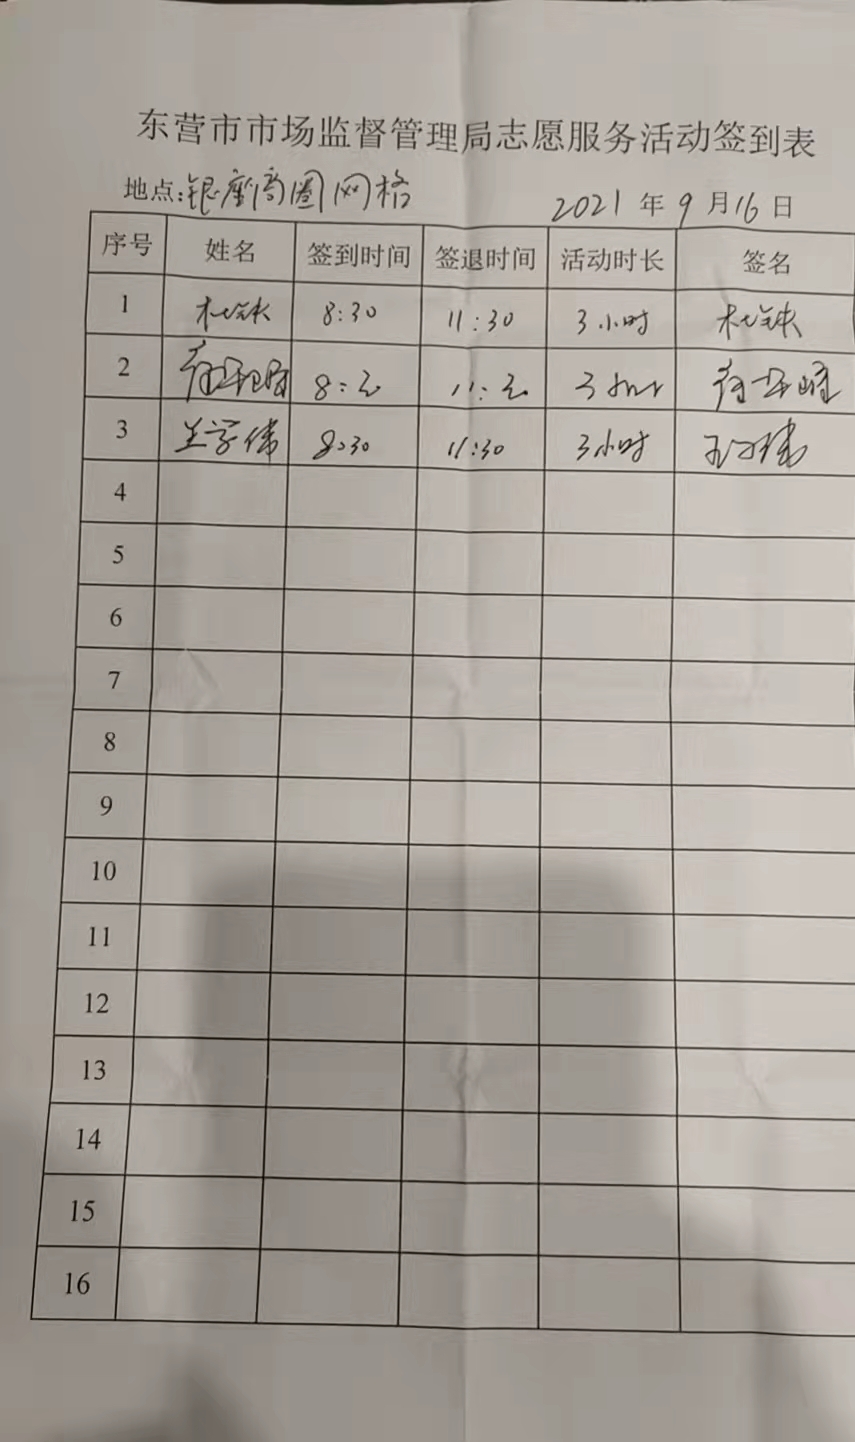 东营市市场监督管理局志愿服务活动签到表
地点:银座商圈网格 2021年9月16日
序号 姓名 签到时间 签退时间 活动时长 签名
1 杜铁 8:30 11:30 3小时 杜铁
2 8:30 11:30 3小时
3 王学伟 8:30 11:30 3小时 王学伟
4
5
6
7
8
9
10
11
12
13
14
15
16